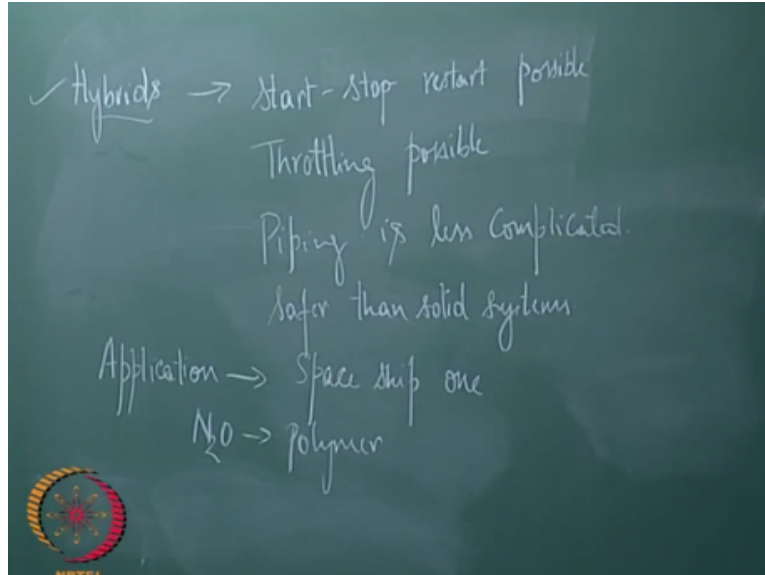 ✓ Hybrids → Start-Stop restart possible
Throttling possible
Piping is less Complicated.
Safer than solid systems
Application → Space ship one
N₂O → Polymer
NPTEL